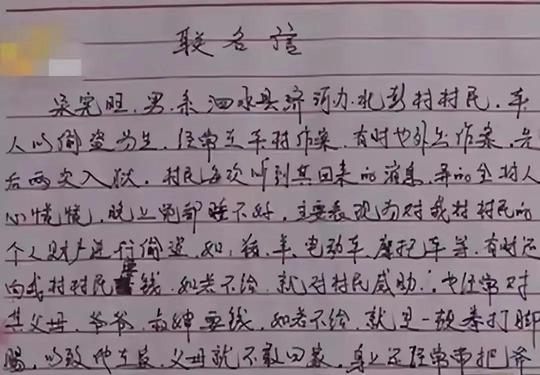 联名信
宪旺,男,系泗水县济河办北彭村村民,本
人以偷盗为生,经常在本村作案,有时也外出作案,先
后两次入狱,村民每次听到其回来的消息,弄的全村人
心慌慌,晚上觉都睡不好,主要表现为对我村村民的
个人财产进行偷盗,如,猪、羊、电动车、摩托车等,有时还
向我村村民要钱,如若不给,就对村民威胁,也经常对
其父母、爷爷、叔婶要钱,如若不给,就是一顿拳打脚
踢,以致他在家,父母就不敢回家,身上还经常带把斧